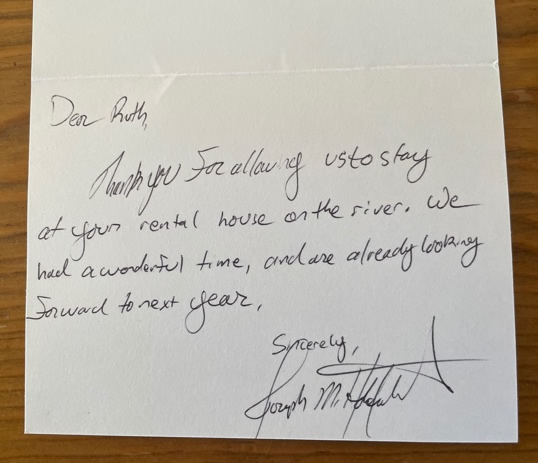 Dear Ruth,
Thank you For allowing us to stay
at your rental house on the river. We
had a wonderful time, and are already looking
Forward to next year.
Sincerely,
Joseph M.